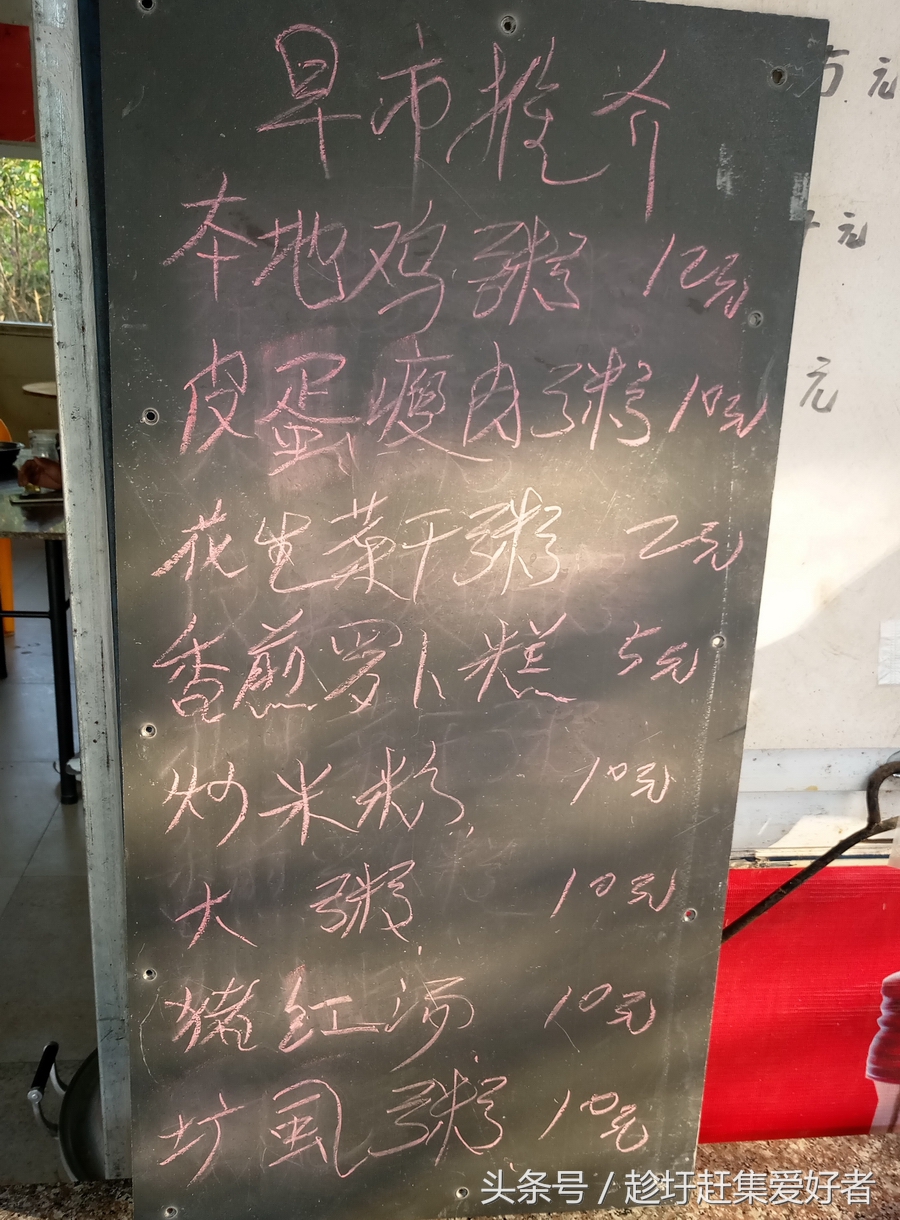 早市推介
本地鸡粥 12元
皮蛋瘦肉粥 10元
花生菜干粥 2元
香煎罗卜糕 5元
炒米粉 10元
大粥 10元
猪红汤 10元
坊风粥 10元
元
元
元
头条号 / 趁圩赶集爱好者